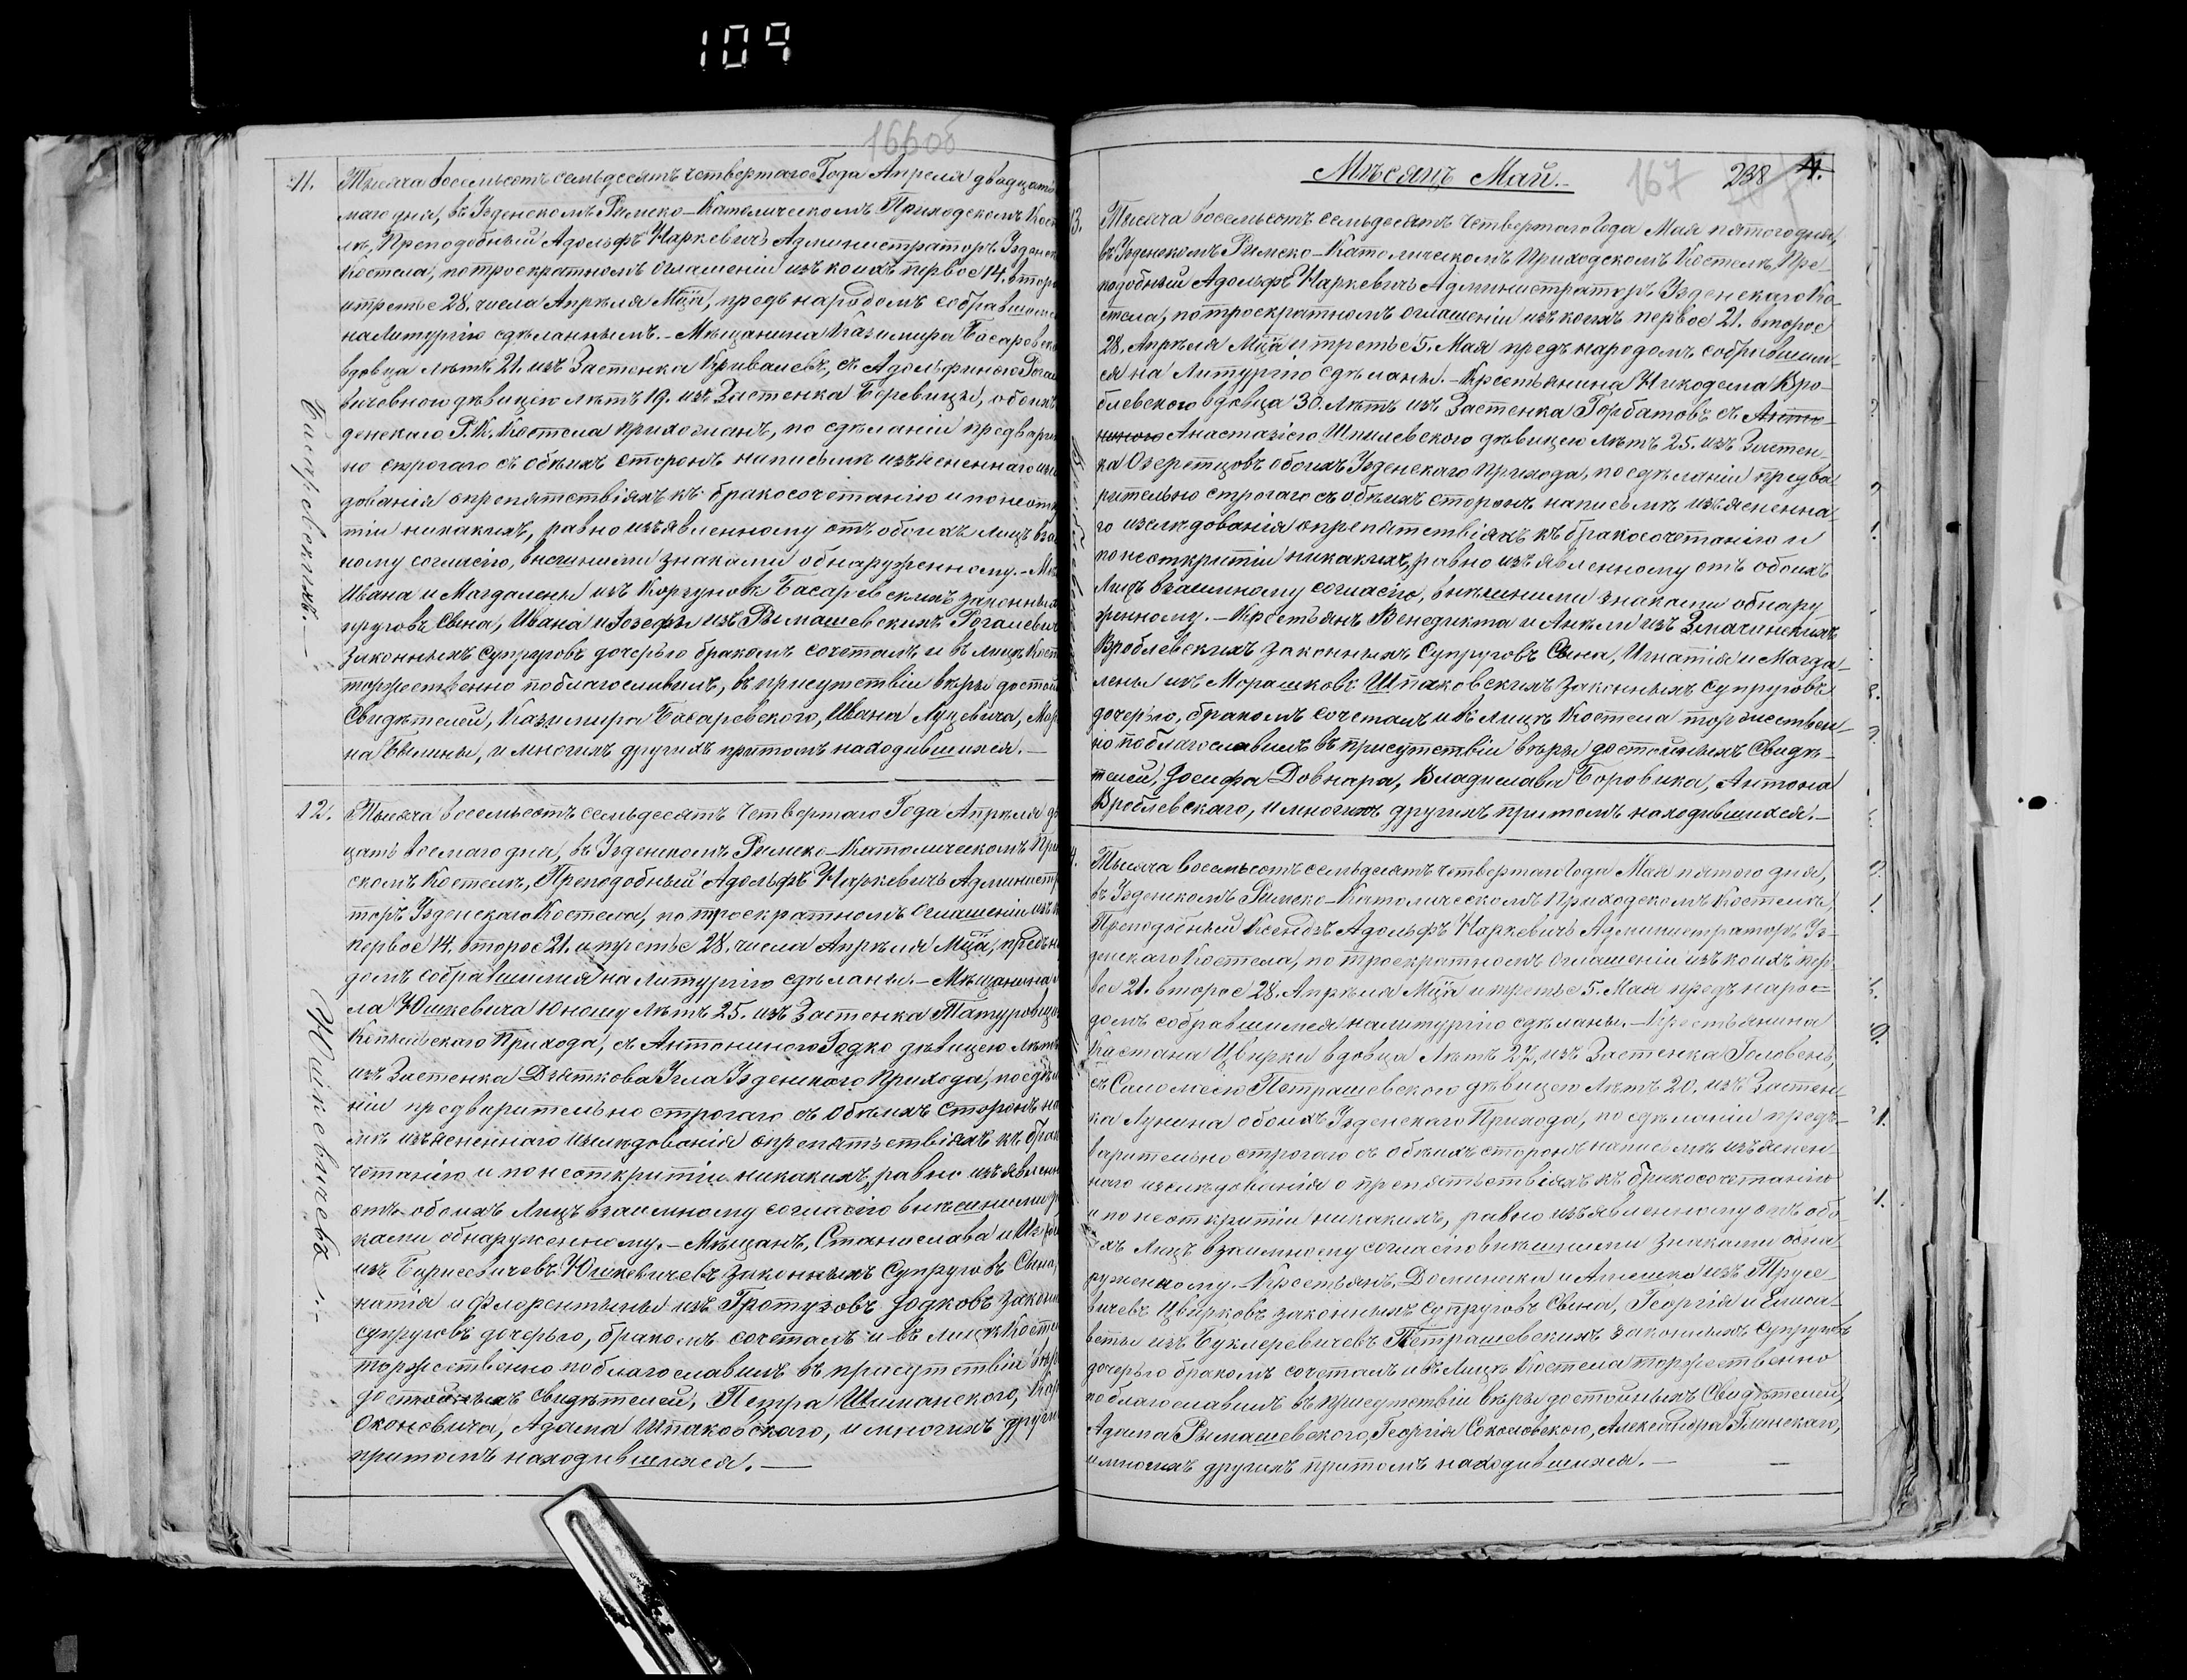 109
166об
11.
Тысяча восемьсотъ семьдесятъ четвертаго Года Апреля двадцать
маго дня, въ Узденскомъ Римско-Католическомъ Приходскомъ Кост
лѣ, Преподобный Адольфъ Наркевичъ Администраторъ Узденск
Костела, по троекратномъ оглашеніи изъ коихъ первое 14. второ
и третье 28. числа Апрѣля Мца, предъ народомъ собравшимс
на Литургію сдѣланнымъ. – Мѣщанина Казимира Басаревск
вдовца лѣтъ 21. изъ Застенка Кривалевъ, съ Адольфиною Рогал
вичевною дѣвицею лѣтъ 19. изъ Застенка Боревицы, обоихъ
денскаго Р. К. Костела прихожанъ, по сдѣланіи предвари
но строгаго съ обѣихъ сторонъ на письмѣ изъясненнаго изсл
дованія о препятствіяхъ къ бракосочетанію и по неотк
тіи никакихъ, равно изъявленному отъ обоихъ лицъ вза
ному согласію, внешними знаками обнаруженному. – Мѣ
Ивана и Магдалены изъ Коргуновъ Басаревскихъ законных
пруговъ Сына, Ивана и Іозефы изъ Рымашевскихъ Рогалевич
законныхъ Супруговъ дочерью бракомъ сочеталъ и въ лицѣ Кост
торжественно поблагословилъ, въ присутствіи вѣры достой
Свидѣтелей, Казимира Басаревского, Ивана Луцевича, Мар
на Былины, и многихъ другихъ притомъ находившихся. –
Басаревскихъ. –
12.
Тысяча восемьсотъ семьдесятъ Четвертаго Года Апрѣля дв
цать восмаго дня, въ Узденскомъ Римско-Католическомъ При
скомъ Костелѣ, Преподобный Адольфъ Наркевичъ Администр
торъ Узденскаго Костела, по троекратномъ Оглашеніи изъ к
первое 14. второе 21. и третье 28. числа Апрѣля Мца, предъ на
домъ собравшимся на Литургію сдѣланы. – Мѣщанина
ла Юшкевича Юношу Лѣтъ 25. изъ Застенка Татуровща
Копыльскаго Прихода, съ Антониною Зодко дѣвицею лѣтъ
изъ Застенка Дзяткова Угла Узденскаго Прихода, по сдѣл
ніи предварительно строгаго съ обѣихъ сторонъ на
мѣ изъясненнаго изслѣдованія о препятствіяхъ къ брак
четанію и по неоткрытіи никакихъ, равно изъявленн
отъ обоихъ Лицъ взаимному согласію внѣшними з
ками обнаруженному. – Мѣщанъ, Станислава и Из
изъ Борисевичевъ Юшкевичевъ законныхъ Супруговъ Сына,
натія и Флорентыны изъ Гротузовъ Зодковъ закон
супруговъ дочерью, бракомъ сочеталъ и въ лицѣ Косте
торжественно поблагославилъ въ присутствіи вѣр
достойныхъ Свидѣтелей, Петра Шиманскаго, Кар
Оконовича, Адама Шпаковскаго, и многихъ други
притомъ находившихся. –
Юшкевичева. –
Мѣсяцъ Май. –
167
238
4.
13.
Тысяча восемьсотъ семьдесятъ Четвертаго Года Мая пятого дня,
въ Узденскомъ Римско-Католическомъ Приходскомъ Костелѣ, Пре-
подобный Адольфъ Наркевичъ Администраторъ Узденскаго Ко-
стела, по троекратномъ оглашеніи изъ коихъ первое 21. второе
28. Апрѣля Мца и третье 5. Мая предъ народомъ собравшим-
ся на Литургію сдѣланы. – Крестьянина Никодема Вро-
блевского вдовца 30. Лѣтъ изъ Застенка Горбатовъ съ Анто-
ниною Анастазіею Шпилевского дѣвицею лѣтъ 25. изъ Застен-
ка Озеретцовъ обоихъ Узденскаго прихода, по сдѣланіи предва-
рительно строгаго съ обѣихъ сторонъ на письмѣ изъясненна-
го изслѣдованія о препятствіяхъ къ бракосочетанію и
по неоткрытіи никакихъ, равно изъявленному отъ обоихъ
Лицъ взаимному согласію, внѣшними знаками обнару-
женному. – Крестьянъ Венедикта и Анели изъ Змачинскихъ
Вроблевскихъ законныхъ Супруговъ Сына, Игнатія и Магда-
лены изъ Морашковъ Шпаковскихъ законныхъ Супруговъ
дочерью, бракомъ сочеталъ и въ лицѣ Костела торжествен-
но поблагославилъ въ присутствіи вѣры достойныхъ Свидѣ-
телей, Іосифа Довнара, Владислава Боровика, Антона
Вроблевскаго, и многихъ другихъ притомъ находившихся. –
4.
Тысяча восемьсотъ семьдесятъ четвертаго Года Мая пятого дня,
въ Узденскомъ Римско-Католическомъ Приходскомъ Костелѣ,
Преподобный Ксендзъ Адольфъ Наркевичъ Администраторъ Уз-
денскаго Костела, по троекратномъ Оглашеніи изъ коихъ пер-
вое 21. второе 28. Апрѣля Мца и третье 5. Мая предъ наро-
домъ собравшимся на литургію сдѣланы. – Крестьянина
Кастана Цвирки вдовца Лѣтъ 27. изъ Застенка Головень,
съ Саломеею Петрашевского дѣвицею Лѣтъ 20. изъ Застен-
ка Лунина обоихъ Узденскаго Прихода, по сдѣланіи предъ-
варительно строгаго съ обѣихъ сторонъ на письмѣ изъяснен-
наго изслѣдованія о препятьствіяхъ къ бракосочетанію
и по неоткрытіи никакихъ, равно изъявленному отъ обо-
ихъ Лицъ взаимному согласію внѣшними знаками обна-
руженному. – Крестьянъ, Доминика и Агнешки изъ Трусе-
вичевъ Цвирковъ законныхъ супруговъ Сына, Георгія и Елиса-
веты изъ Буклеревичевъ Петрашевскихъ законныхъ Супруговъ
дочерью бракомъ сочеталъ и въ Лицѣ Костела торжественно
поблагославилъ въ присутствіи вѣры достойныхъ Свидѣтелей,
Адама Рымашевского, Георгія Соколовского, Александра Глинскаго,
и многихъ другихъ притомъ находившихся. –